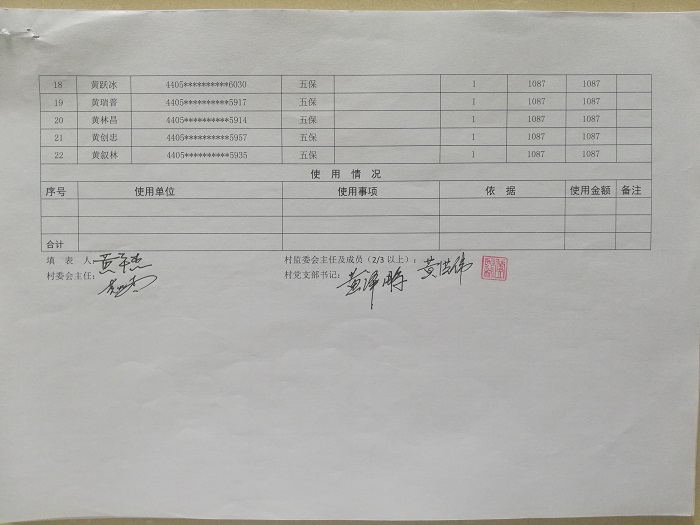 18 黄跃冰 4405**********6030 五保 1 1087 1087
19 黄瑞普 4405**********5917 五保 1 1087 1087
20 黄林昌 4405**********5914 五保 1 1087 1087
21 黄创忠 4405**********5957 五保 1 1087 1087
22 黄叙林 4405**********5935 五保 1 1087 1087
使 用 情 况
序号 使用单位 使用事项 依 据 使用金额 备注
合计
填 表 人: 村监委会主任及成员(2/3以上): 黄
村委会主任: 村党支部书记: 黄